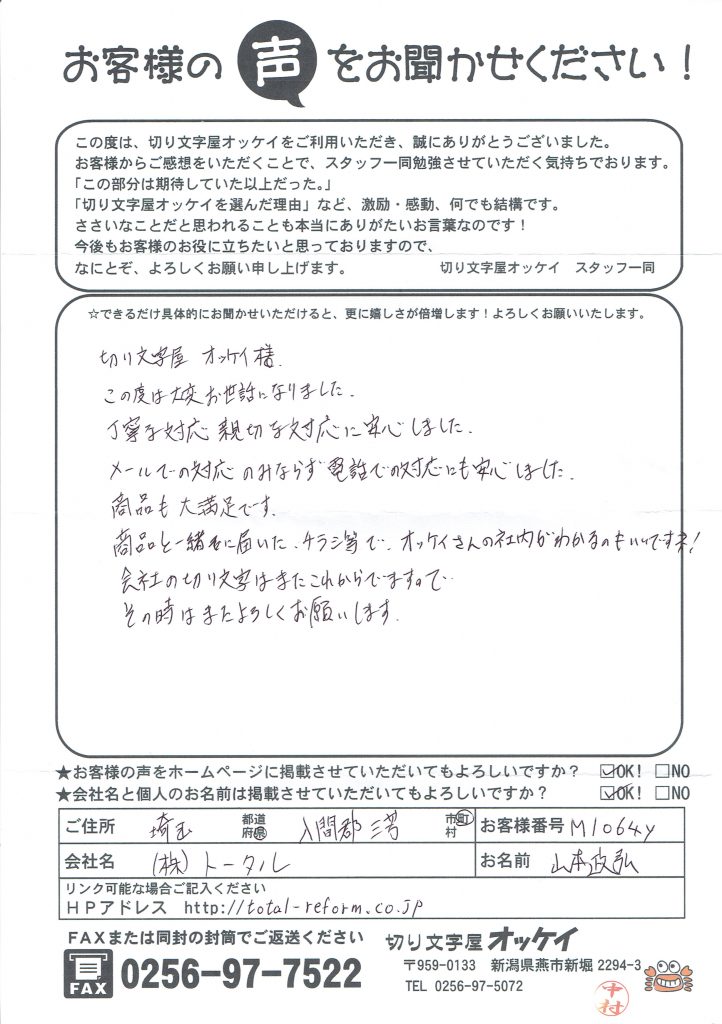 お客様の声をお聞かせください！
この度は、切り文字屋オッケイをご利用いただき、誠にありがとうございました。
お客様からご感想をいただくことで、スタッフ一同勉強させていただく気持ちでおります。
「この部分は期待していた以上だった。」
「切り文字屋オッケイを選んだ理由」など、激励・感動、何でも結構です。
ささいなことだと思われることも本当にありがたいお言葉なのです！
今後もお客様のお役に立ちたいと思っておりますので、
なにとぞ、よろしくお願い申し上げます。 切り文字屋オッケイ スタッフ一同
☆できるだけ具体的にお聞かせいただけると、更に嬉しさが倍増します！よろしくお願いいたします。
切り文字屋 オッケイ様.
この度は大変お世話になりました.
丁寧な対応 親切な対応に安心しました.
メールでの対応のみならず電話での対応にも安心しました.
商品も大満足です.
商品と一緒に届いた、チラシ等で、オッケイさんの社内がわかるのもいいですネ!
会社の切り文字はまたこれからでますので
その時はまたよろしくお願いします.
★お客様の声をホームページに掲載させていただいてもよろしいですか？ ☑OK! □NO
★会社名と個人のお名前は掲載させていただいてもよろしいですか？ ☑OK! □NO
ご住所 埼玉 都道府県 入間郡三芳 市町村 お客様番号 M1064y
会社名 (株)トータル お名前 山本政弘
リンク可能な場合ご記入ください
HPアドレス http://total-reform.co.jp
FAXまたは同封の封筒でご返送ください 切り文字屋オッケイ
FAX 0256-97-7522
〒959-0133 新潟県燕市新堀 2294-3
TEL 0256-97-5072
中村